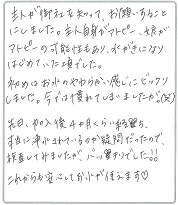 主人が御社を知って、お願いすること
にしました。主人自身がアトピー、娘が
アトピーの可能性もあり、水がきになり
はじめていた頃でした。
初めはお水のやわらかい感じにビックリ
しました。今では慣れてしまいましたが(笑)
先日、加入後4ヶ月くらい経過し、
本当に浄水されているのか疑問だったので、
検査してみましたが、バッチリでした!!
これからも安心してお水が使えます♡